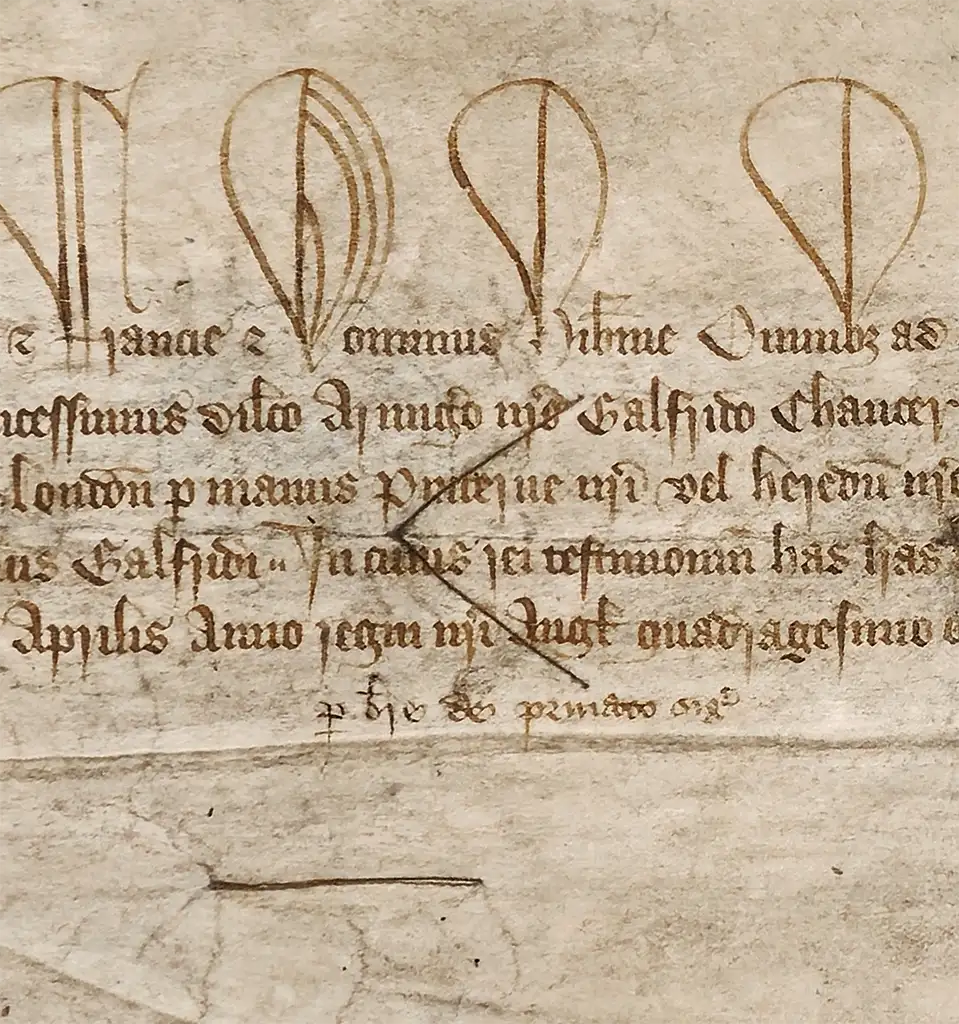 ⁊ Francie ⁊ Dominus Hibnie Omnibz ad
ncessimus dilco Armigo nro Galfrido Chaucer
London p manus Pincerne nri vel heredu nro
us Galfridi In cuius rei testimoniu has lras
Aprilis Anno regni nri Angl quadragesimo
p bre de priuato sig